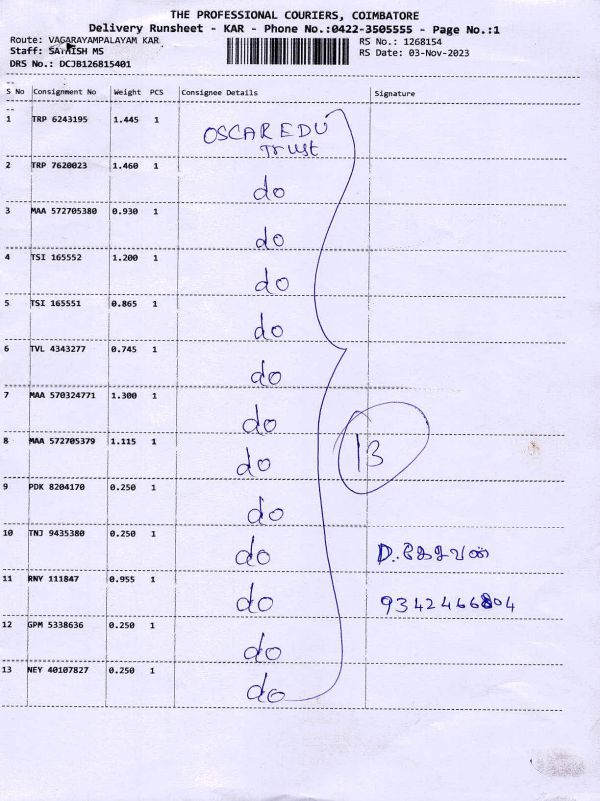 THE PROFESSIONAL COURIERS, COIMBATORE
Delivery Runsheet - KAR - Phone No.:0422-3505555 - Page No.:1
Route: VAGARAYAMPALAYAM KAR
RS No.: 1268154
Staff: SATHISH MS
RS Date: 03-Nov-2023
DRS No.: DCJB126815401
S No Consignment No Weight PCS Consignee Details Signature
1 TRP 6243195 1.445 1 OSCAR EDU
Trust
2 TRP 7620023 1.460 1 do
3 MAA 572705380 0.930 1 do
4 TSI 165552 1.200 1 do
5 TSI 165551 0.865 1 do
6 TVL 4343277 0.745 1 do
7 MAA 570324771 1.300 1 do
8 MAA 572705379 1.115 1 do 13
9 PDK 8204170 0.250 1 do
10 TNJ 9435380 0.250 1 do D. கேசவன்
11 RNY 111847 0.955 1 do 9342466804
12 GPM 5338636 0.250 1 do
13 NEY 40107827 0.250 1 do